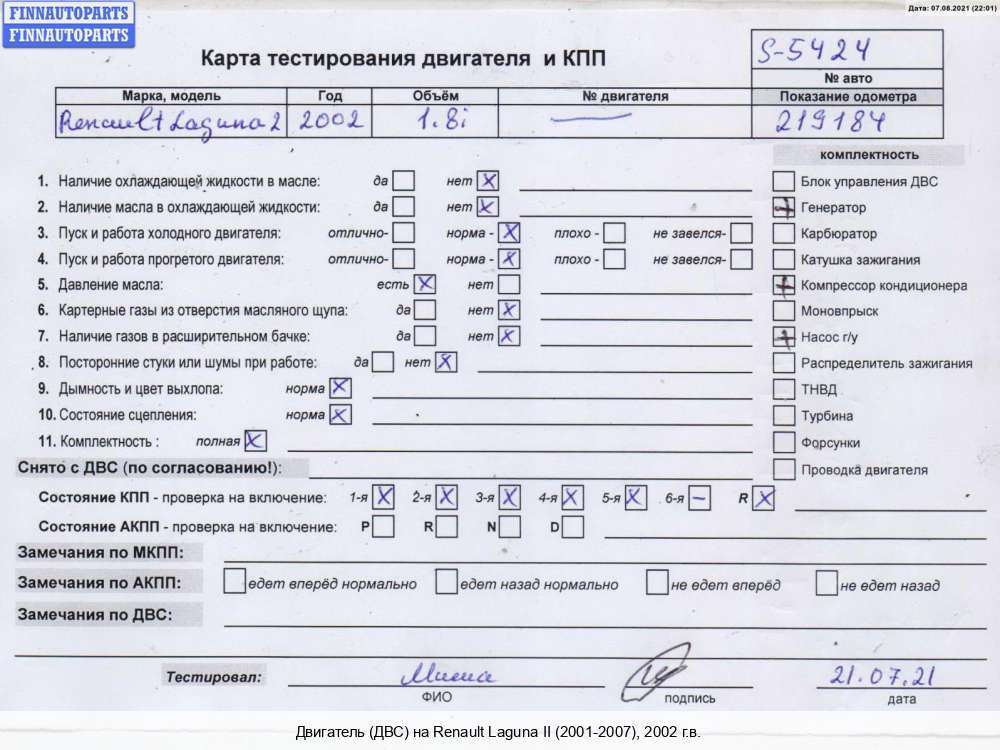 FINNAUTOPARTS
FINNAUTOPARTS
Дата: 07.08.2021 (22:01)
Карта тестирования двигателя и КПП
S-5424
№ авто
Марка, модель Год Объём № двигателя Показание одометра
Renault Laguna 2 2002 1.8i — 219184
комплектность
1. Наличие охлаждающей жидкости в масле: да нет X
Блок управления ДВС
2. Наличие масла в охлаждающей жидкости: да нет X
+ Генератор
3. Пуск и работа холодного двигателя: отлично- норма - X плохо - не завелся-
Карбюратор
4. Пуск и работа прогретого двигателя: отлично- норма - X плохо - не завелся-
Катушка зажигания
5. Давление масла: есть X нет
+ Компрессор кондиционера
6. Картерные газы из отверстия масляного щупа: да нет X
Моновпрыск
7. Наличие газов в расширительном бачке: да нет X
+ Насос г/у
8. Посторонние стуки или шумы при работе: да нет X
Распределитель зажигания
9. Дымность и цвет выхлопа: норма X
ТНВД
10. Состояние сцепления: норма X
Турбина
11. Комплектность : полная X
Форсунки
Снято с ДВС (по согласованию!):
Проводка двигателя
Состояние КПП - проверка на включение: 1-я X 2-я X 3-я X 4-я X 5-я X 6-я – R X
Состояние АКПП - проверка на включение: P R N D
Замечания по МКПП:
Замечания по АКПП: едет вперёд нормально едет назад нормально не едет вперёд не едет назад
Замечания по ДВС:
Тестировал: Миша 21.07.21
ФИО подпись дата
Двигатель (ДВС) на Renault Laguna II (2001-2007), 2002 г.в.